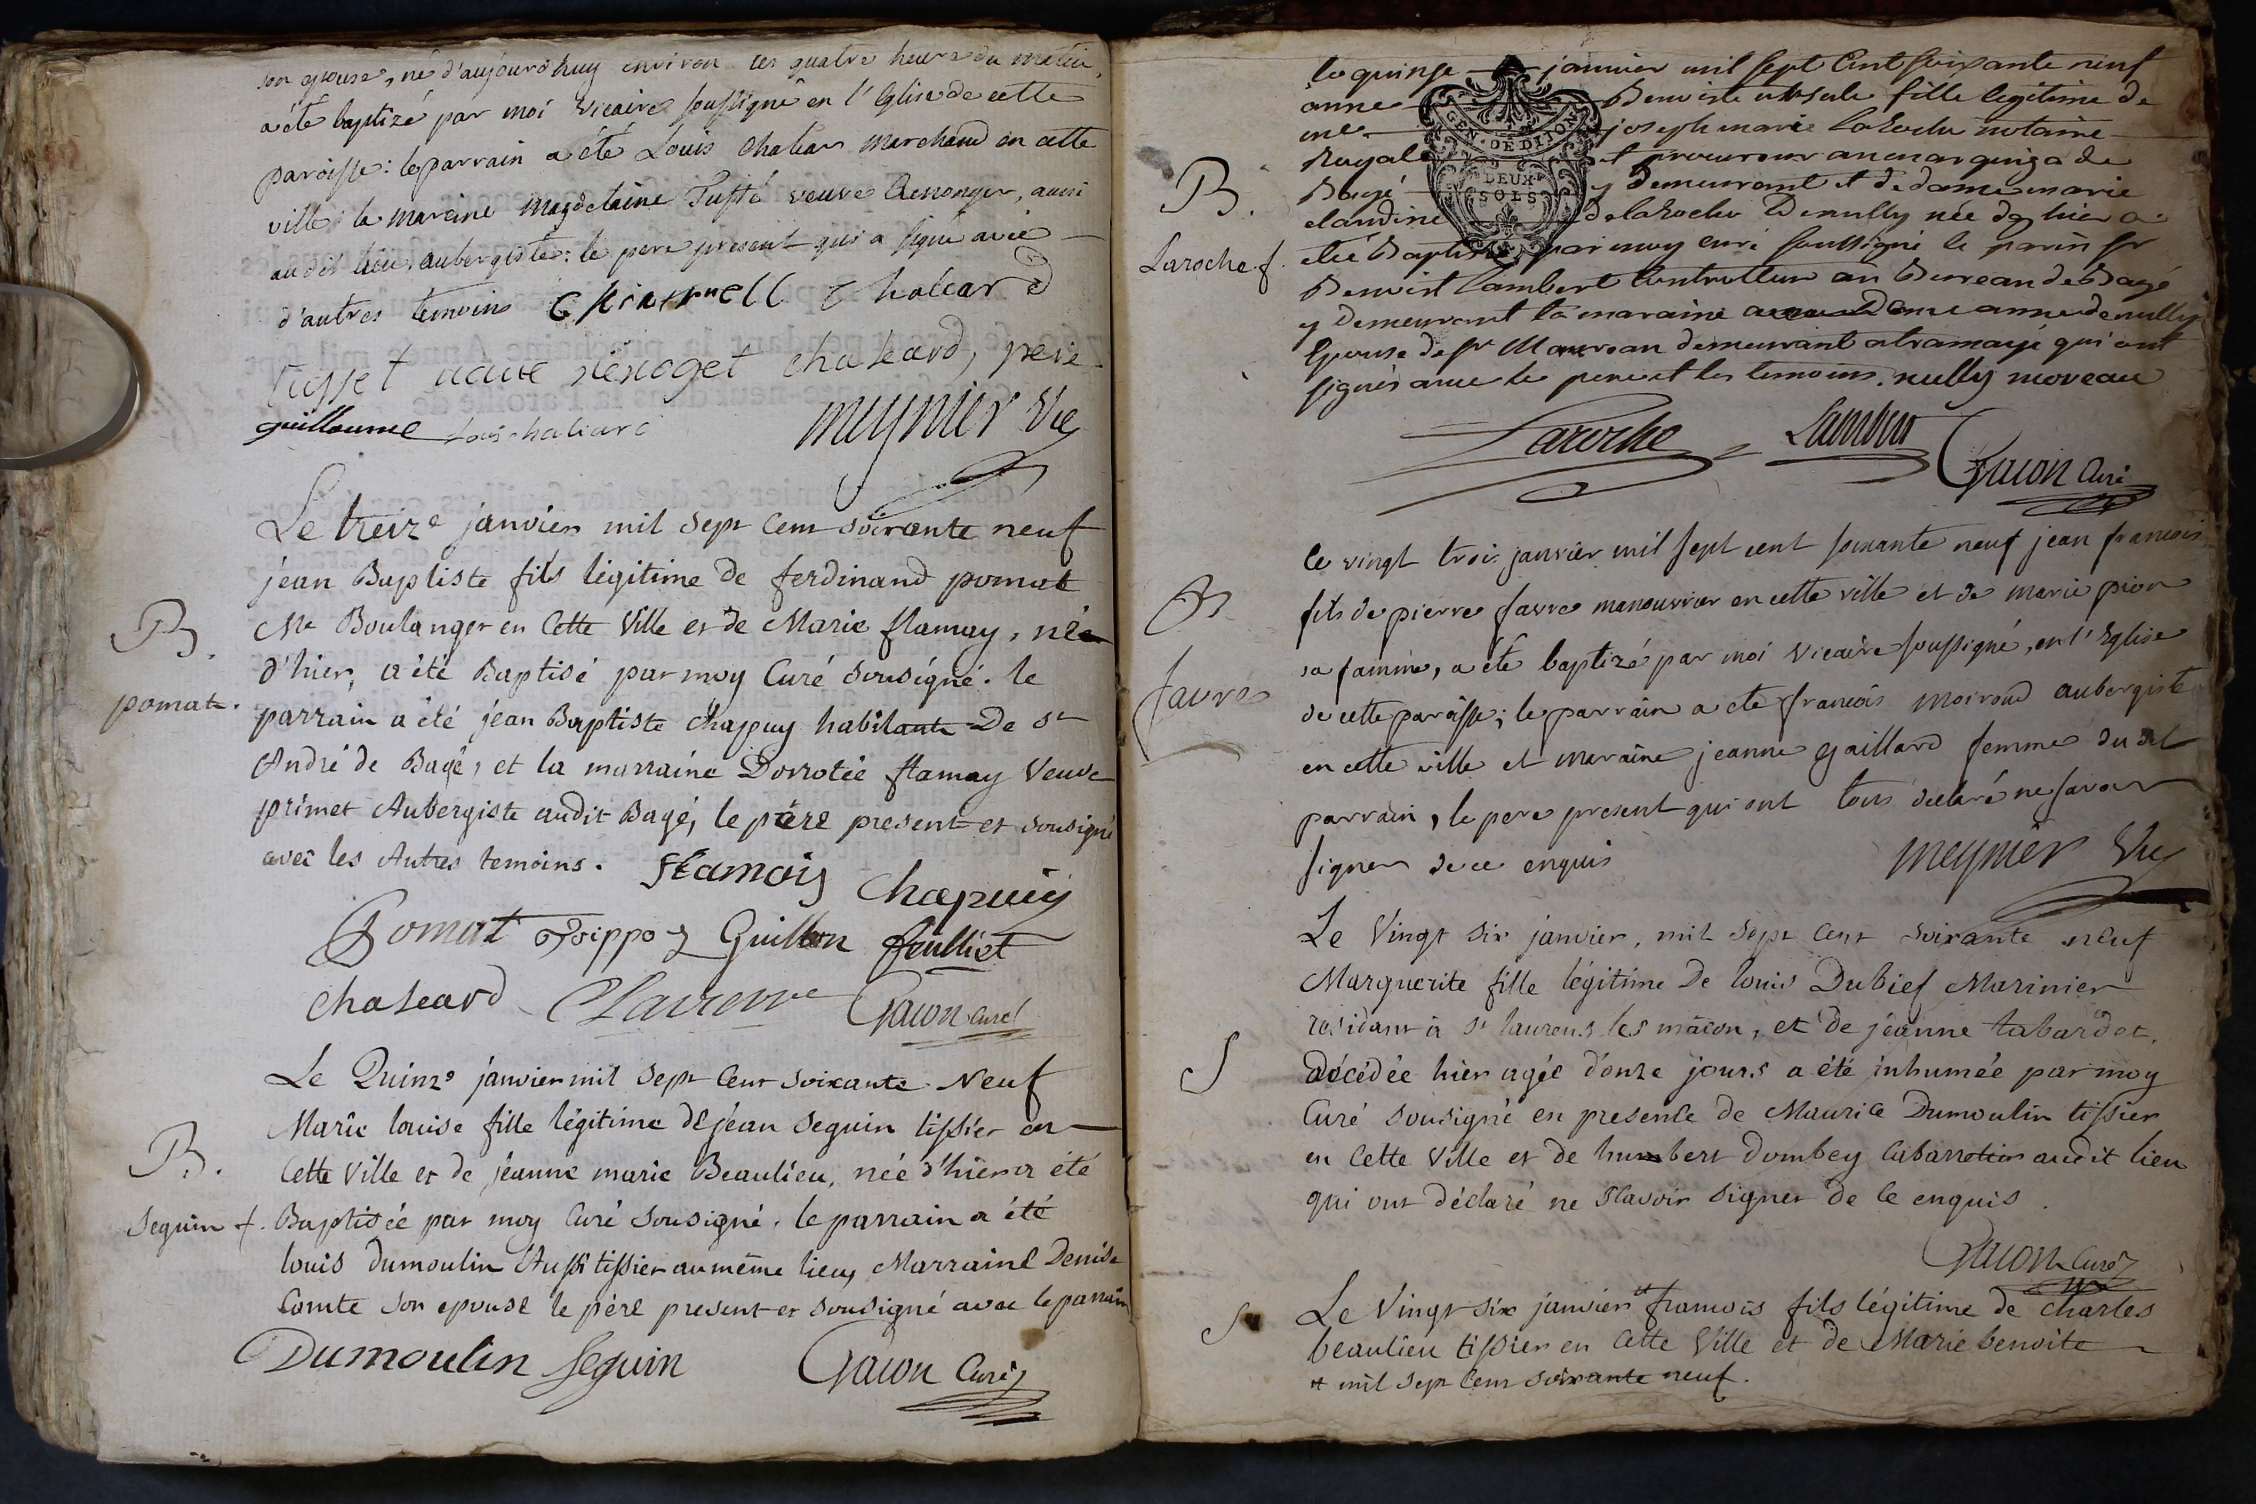 son epouse, né d'aujourd'huy environ les quatre heures du matin,
a été baptizé par moi vicaire soussigné en l'Eglise de cette
paroisse: le parrain a été Louis chaliar marchand en cette
ville: la maraine magdelaine veuve, aussi
audit lieu aubergiste: le pere present qui a signé avec
d'autres temoins chaliard
veuve chaleard, pere
guillaume Louis chaliard
meynier Vic
Le treize janvier mil sept cent soixante neuf
jean Baptiste fils légitime de ferdinand pomat
Me Boulanger en Cette Ville et de Marie flamay, née
B.
d'hier, a été Baptisé par moy Curé sousigné. le
pomat.
parrain a été jean Baptiste chappuy habitant De st
André de Bagé, et la marraine Dorrotée flamay Veuve
primet Aubergiste audit Bagé, le père present et sousigné
avec les Autres temoins. flamois chapuiy
Pomat Guillon feulliet
chaleard Gacon curé
Le Quinze janvier mil sept Cent soixante Neuf
Marie louise fille légitime de jéan seguin tissier en
B.
Cette Ville et de jéanne marie Beaulieu, née d'hier a été
seguin f.
Baptisée par moy Curé sousigné. le parrain a été
louis Dumoulin Aussi tissier au même lieu, Marraine Denise
Comte son epouse le père present et sousigné avec le parrain
Dumoulin Seguin Gacon Curé
GEN. DE DIJON
DEUX
SOLS
le quinze janvier mil sept Cent soixante neuf
anne Benoiste ursule fille legitime de
me joseph marie laroche notaire
Royal et procureur au marquiza de
B.
Bagé y demeurant et de dame marie
claudine delaroche Denully née dhier a
Laroche f.
été Baptisée par moy curé soussigné le parin sr
Benoist Lambert Controlleur au Bureau de Bagé
y Demeurant la maraine Dame anne denully
Epouse de sr Moreau demeurant a tramayé qui ont
signés avec le pere et les temoins. nully moreau
Laroche Lambert
Gacon Curé
le vingt trois janvier mil sept cent soixante neuf jean francois
B
fils de pierre favre manouvrier en cette ville et de marie pion
sa famme, a été baptizé par moi vicaire soussigné, en l'Eglise
favre
de cette paroisse; le parrain a eté francois moiroud aubergiste
en cette ville et maraine jeanne gaillard femme du dit
parrain, le pere present qui ont tous declaré ne savoir
signer de ce enquis meynier Vic
Le Vingt six janvier, mil sept Cent soixante neuf
Marguerite fille légitime De louis Dubief Marinier
residant à st laurens les mâcon, et de jéanne tabardet,
S
décédée hier agée d'onze jours a été inhumée par moy
Curé sousigné en presence de Maurice Dumoulin tissier
en Cette Ville et de humbert Dombey Cabarretier audit lieu
qui ont déclaré ne sçavoir signer de Ce enquis.
Gacon Curé
S
Le Vingt six janvier # francois fils légitime de charles
beaulieu tissier en Cette Ville et de Marie benoite
# mil sept Cent soixante neuf.